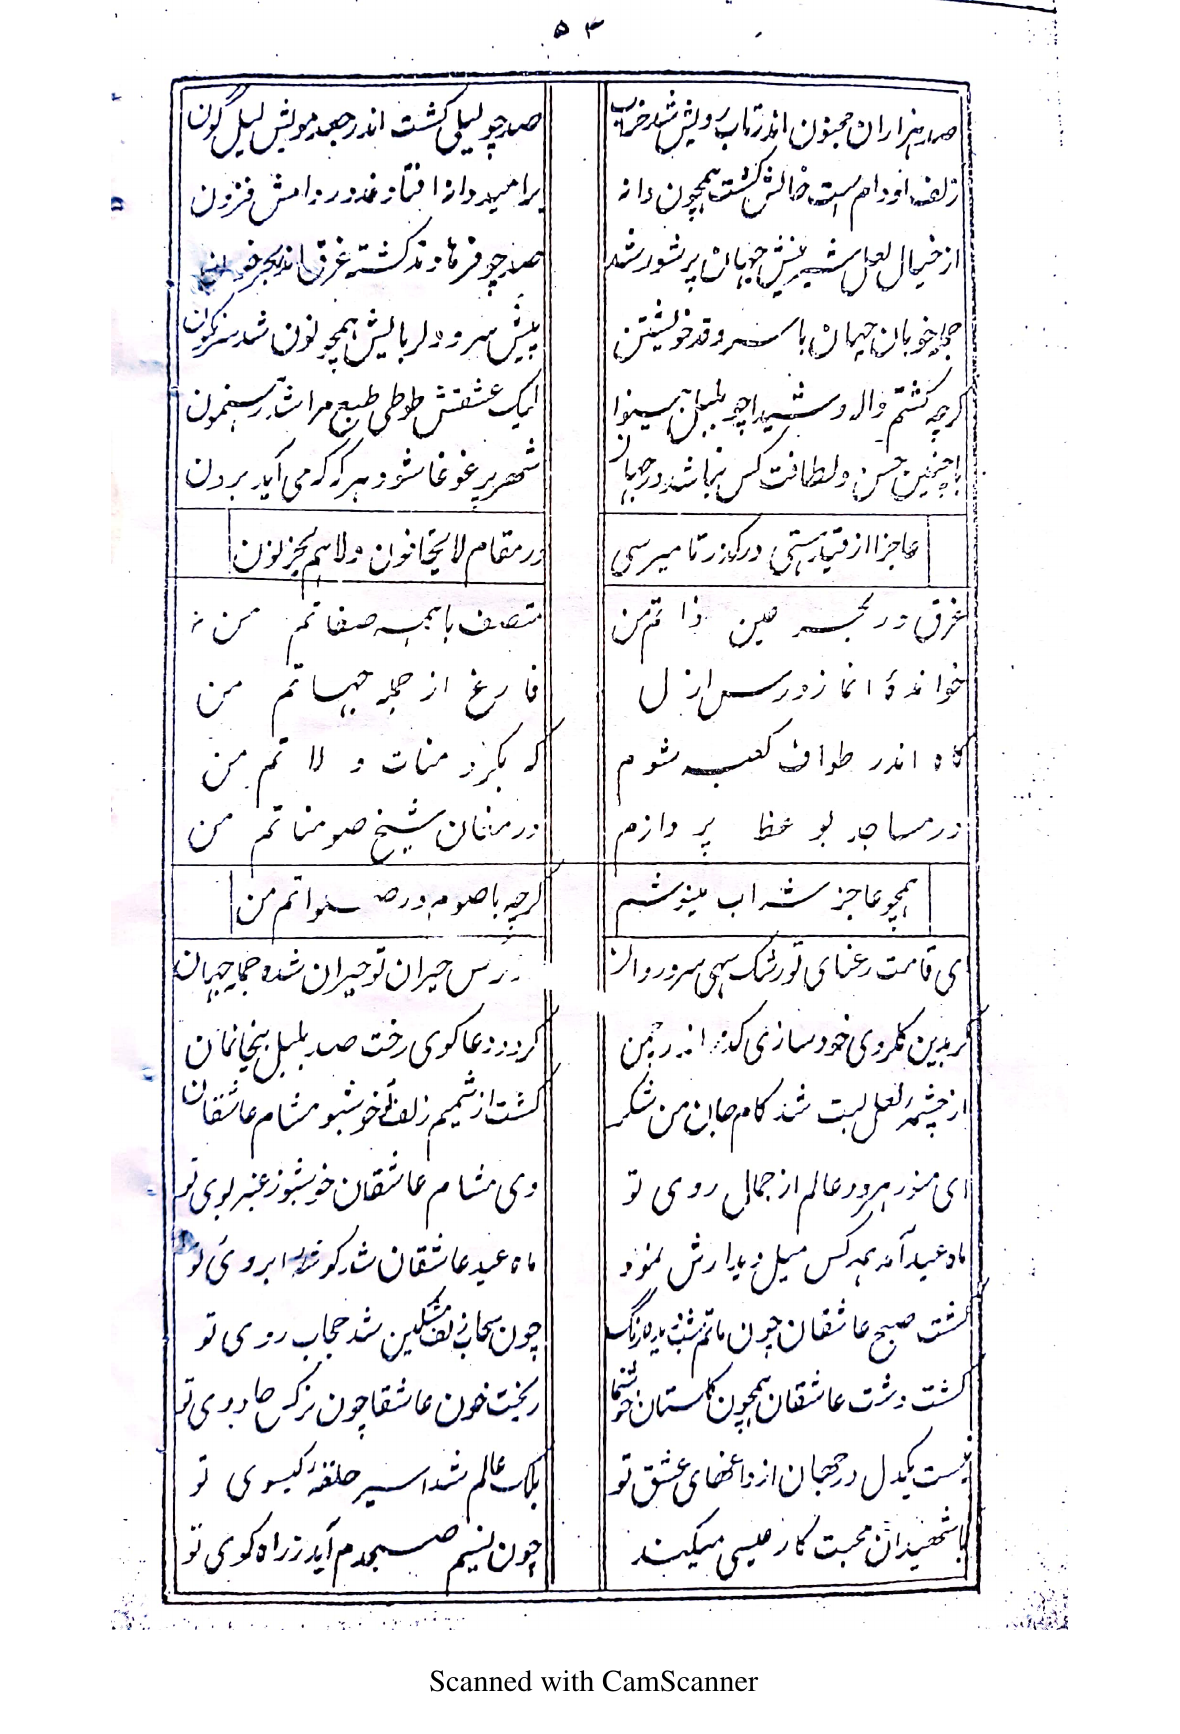 ۵۳
صد هزاران مجنون اندر تاب رویش شد خراب
صد چو لیلی گشت اندر جعد مویش لیل گون
زلف او دام است خالش گشت همچون دانه
بر امید دانه افتادند در دامش فزون
از خیال لعل شیرینش جهان پر شور شد
صد چو فرهادند گشته غرق اندر بحر خون
جمله خوبان جهان با سرو قد خویشتن
پیش سرو دلربایش همچو نون شد سرنگون
گرچه گشتم واله و شیدا چو بلبل بینوا
لیک عشقش طوطی طبع مرا شد رهنمون
با چنین حسن و لطافت کس نباشد در جهان
شهر پر غوغا شود هر گه که می آید برون
عاجزا از قید هستی درگذر تا میرسی
در مقام لا یخافون ولا هم یحزنون
غرق در بحر عین ذاتم من
متصف با همه صفاتم من
خواندهٔ انما ز درس ازل
فارغ از جمله جهاتم من
گاه اندر طواف کعبه شوم
گه بگرد منات و لاتم من
در مساجد بوعظ پردازم
در مغان شیخ سومناتم من
همچو عاجز شراب مینوشم
گرچه با صوم و در صلواتم من
ای قامت رعنای تو رشک سهی سرو روان
نرگس حیران تو حیران شده جمله جهان
گر بدین گلروی خود سازی گذر اندر چمن
گردد دعا گوی رخت صد بلبل بیخانمان
از چشمهٔ لعل لبت شد کام جان من شکر
گشت از شمیم زلف تو خوشبو مشام عاشقان
ای منور هر دو عالم از جمال روی تو
وی مشام عاشقان خوشبو ز عنبر بوی تو
ماه عید آمد همه کس میل دیدارش نمود
ماه عید عاشقان شد گوشهٔ ابروی تو
گشت صبح عاشقان چون ماتم شب رنگ
چون سحاب زلف مشکین شد حجاب روی تو
گشت دشت عاشقان همچون گلستان خوشنما
ریخت خون عاشقا چون نرگس جادوی تو
نیست یکدل در جهان از داغهای عشق تو
بلک عالم شد اسیر حلقهٔ گیسوی تو
با شهیدان محبت کار عیسی میکند
چون نسیم صبحدم آید ز راه کوی تو
Scanned with CamScanner